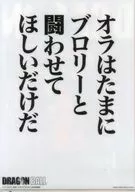 オラはたまに
ブロリーと
闘わせて
ほしいだけだ
DRAGON BALL